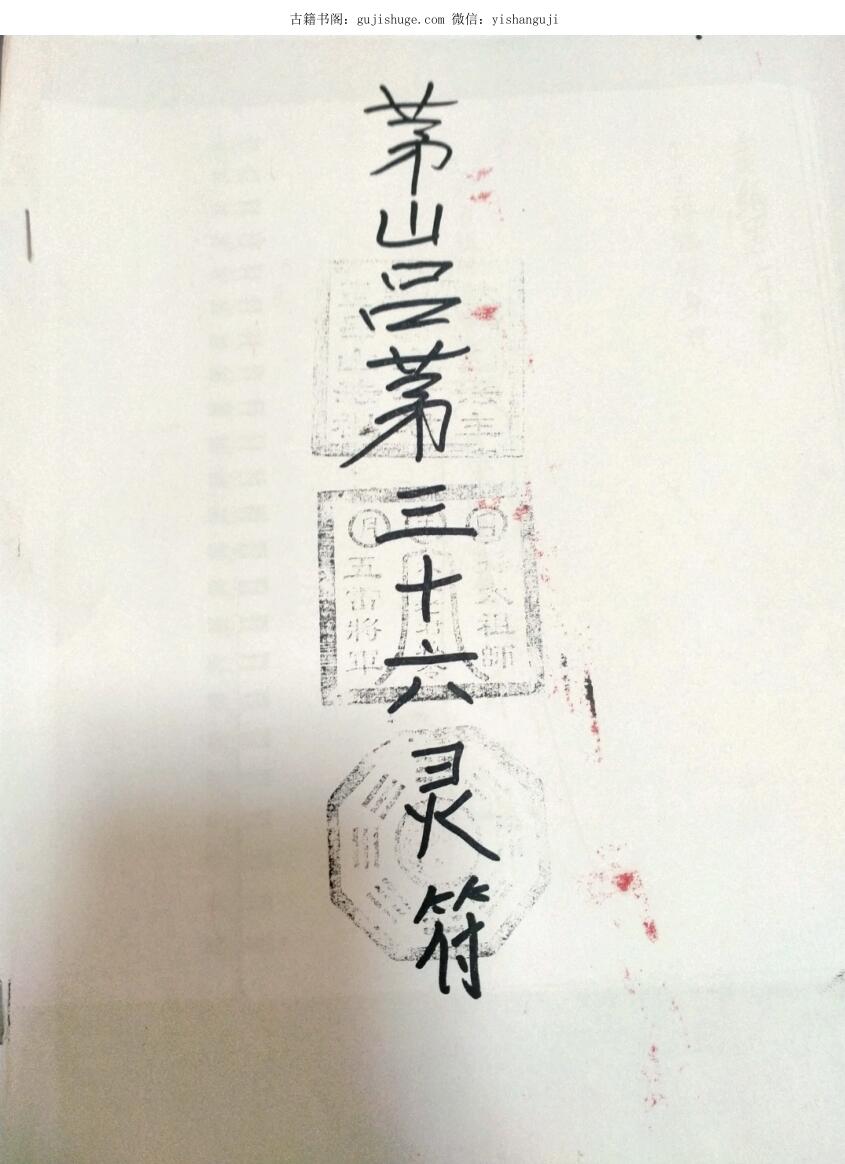 古籍书阁: gujishuge.com 微信: yishanguji
茅山吕茅三十六灵符
日
月
祖師
五雷將軍